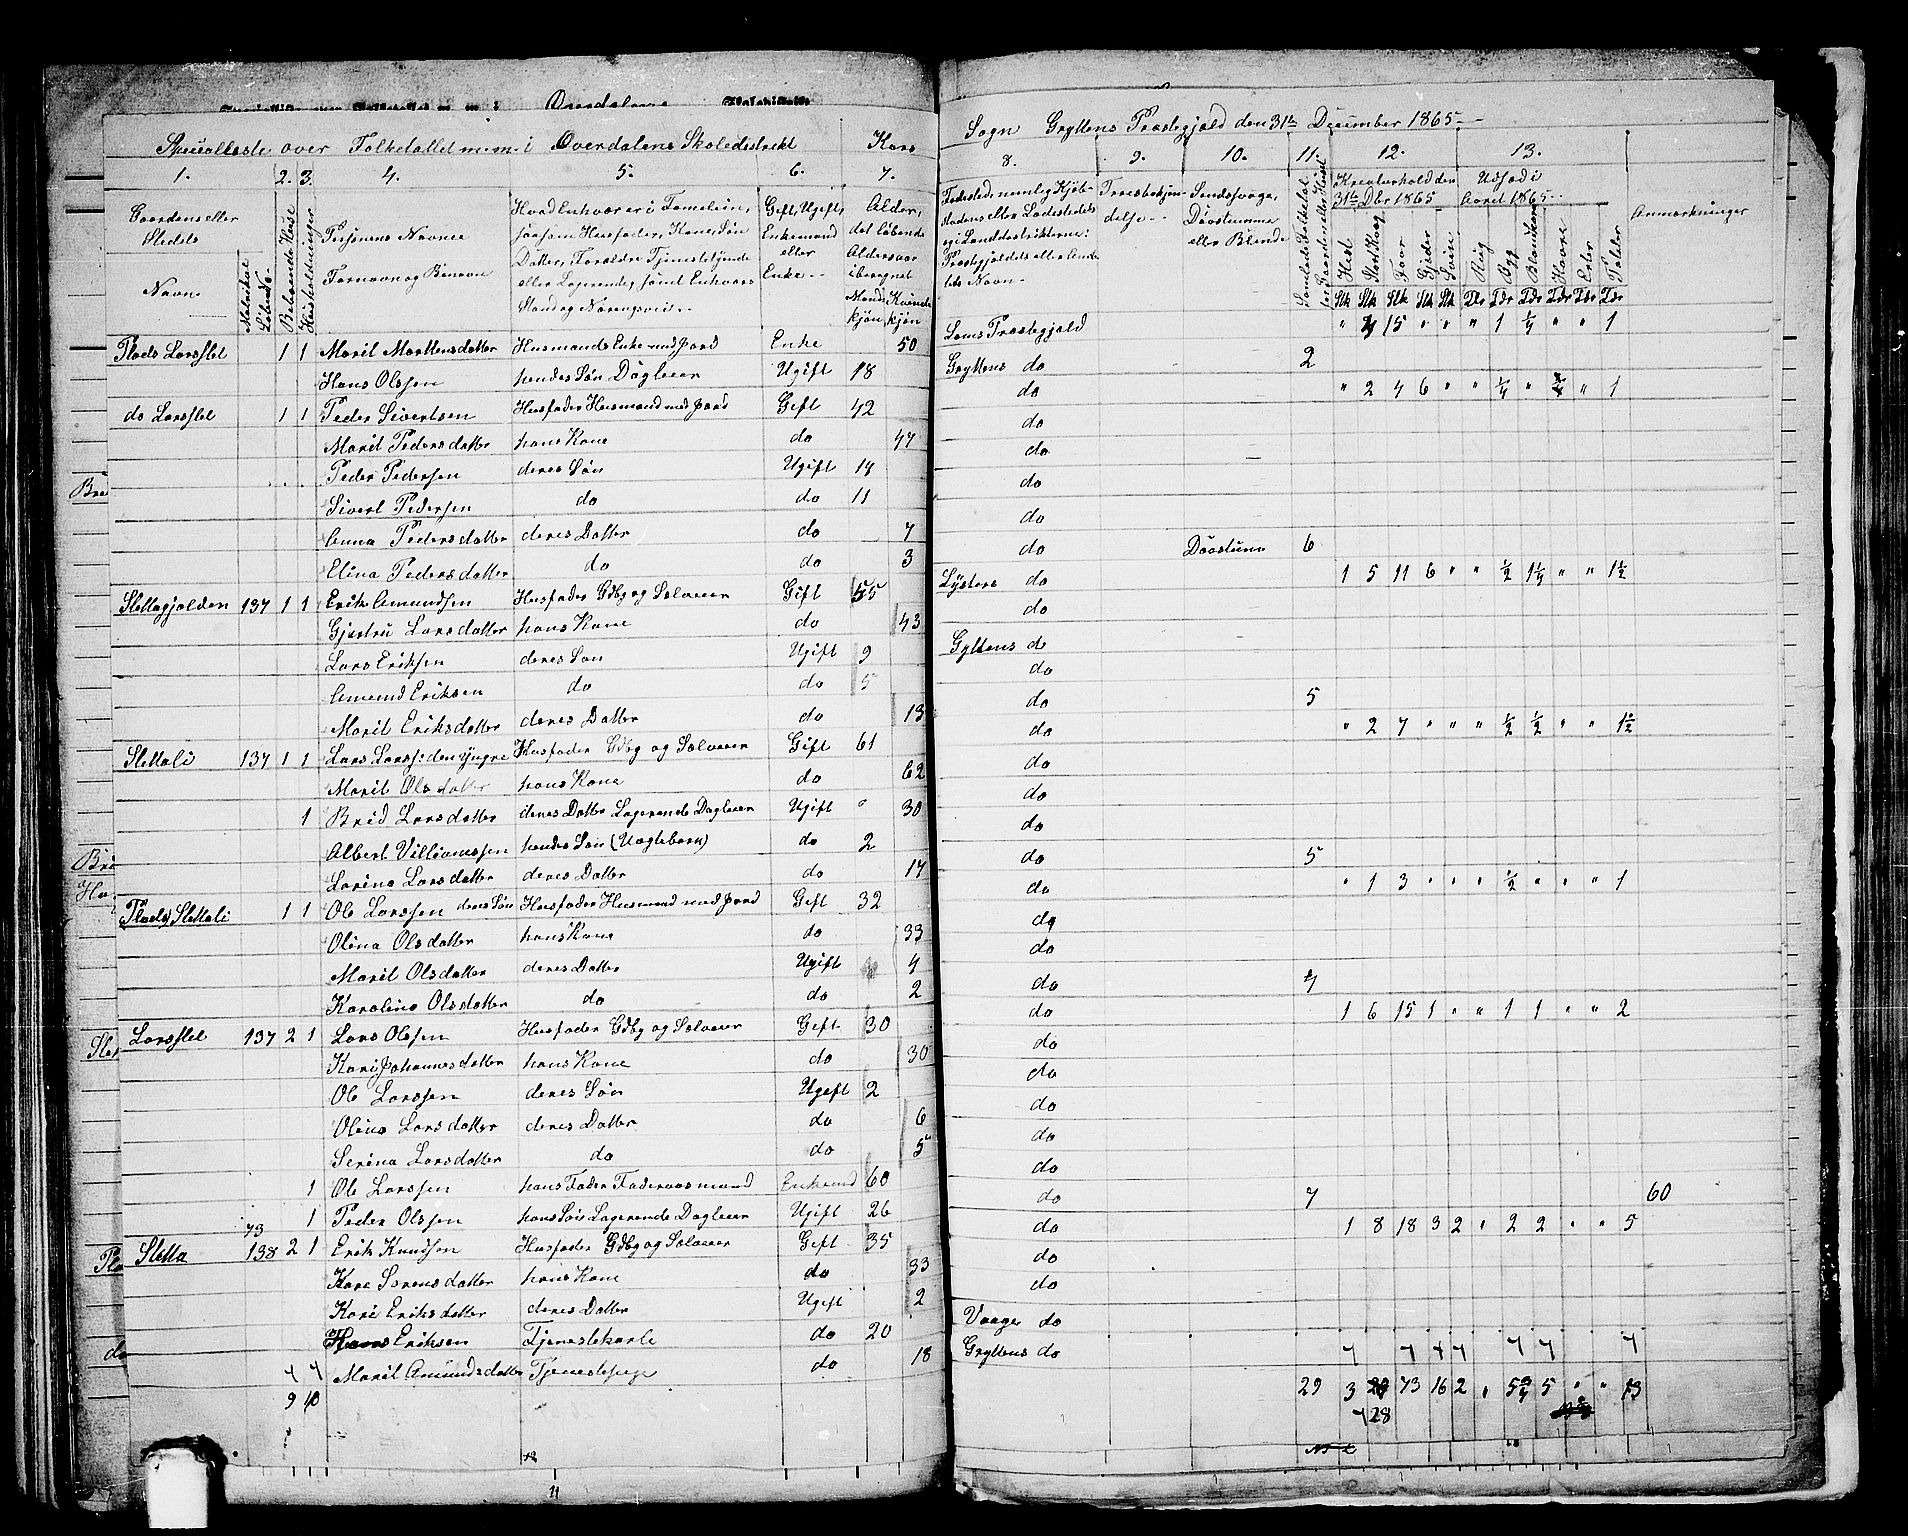 Specialliste over Folketallet m.m. i Overdalens Skoledistrikt Kors
Sogn Gryttens Præstegjæld den 31te December 1865.
1. 2. 3. 4. 5. 6. 7.
8. 9. 10. 11. 12. 13.
Gaardens eller Stedets Navn
Matrikul Løbe No.
Beboende Huse
Huusholdninger
Personens Navne Fornavn og Benævn
Hvad Enhver er i Familien, saasom Husfader, Kone, Søn Datter, Forældre Tjenestetjende eller Logerende, samt Enhvers Stand og Næringsvei.
Gift, Ugift, Enkemand eller Enke
Alder, det løbende Aldersaar iberegnet
Mandkjøn, Kvindekjøn
Fødested, nemlig Kjøbstadens eller Ladestedets og i Landdistrikterne: Præstegjældets eller Landets Navn
Troesbekjendelse
Sindssvage, Døvstumme eller Blinde
Kreaturhold den 31te Dbr 1865
Hest Stort Kvæg Faar Gjeder Sviin
Udsæd i Aaret 1865
Rug Byg Blandkorn Havre Erter Poteter
Anmærkninger
Plads Larsslet 1 1 Marit Mortensdatter Husmands Enke med Jord Enke 50 Loms Præstegjæld " 4 15 " " " 1 ¼ " " 1
Hans Olssen hendes Søn Dagleier Ugift 18 Gryttens do 2
do Larsslet 1 1 Peder Sivertsen Husfader Husmand med Jord Gift 42 do " 2 4 6 " " ¼ " " 1
Marit Pedersdatter hans Kone do 47 do
Peder Pedersen deres Søn Ugift 14 do
Sivert Pedersen do do 11 do
Anna Pedersdatter deres Datter do 7 do
Elina Pedersdatter do do 3 do Døvstum 6
Slettagjølden 137 1 1 Erik Amundsen Husfader Gdbg og Selveier Gift 55 Lysters do 1 5 11 6 " " ½ 1¼ " " 1½
Gjertru Larsdatter hans Kone do 43 do
Lars Eriksen deres Søn Ugift 9 Gyttens do
Amund Eriksen do do 5 do
Marit Eriksdatter deres Datter do 13 do 5
Slettali 137 1 1 Lars Larss: den yngre Husfader Gdbg og Selveier Gift 61 do " 2 7 " " " ½ ½ " " 1½
Marit Olsdatter hans Kone do 62 do
1 Brid Larsdatter deres Datter Logerende Dagleier Ugift " 30 do
Albert Villiamssen hendes Søn (Uægtebarn) do 2 do
Larina Larsdatter deres Datter do 17 do 5
Plads Slettali 1 1 Ole Larssen deres Søn Husfader Husmand med Jord Gift 32 do " 1 3 " " " ½ " " " 1
Olina Olsdatter hans Kone do 33 do
Marit Olsdatter deres Datter Ugift 4 do
Karolina Olsdatter do do 2 do 4
Larsslet 137 2 1 Lars Olssen Husfader Gdbg og Selveier Gift 30 do 1 6 15 1 " " 1 1 " " 2
Kari Johannesdatter hans Kone do 30 do
Ole Larssen deres Søn Ugift 2 do
Olina Larsdatter deres Datter do 6 do
Serina Larsdatter do do 5 do
1 Ole Larssen hans Fader Føderaadsmand Enkemd 60 do
1 Peder Olssen hans Søn Logerende Dagleier Ugift 26 do 7 60
73
Sletta 138 2 1 Erik Knudsen Husfader Gdbg og Selveier Gift 35 do 1 8 18 3 2 " 2 2 " " 5
Kare Sørensdatter hans Kone do 33 do
Kari Eriksdatter deres Datter Ugift 2 do
Hans Eriksen Tjenestekarl do 20 Vaage do
Marit Amundsdatter Tjenestepige do 18 Gryttens do
9 10
29 3 28 73 16 2 " 5¾ 5 " " 13
11